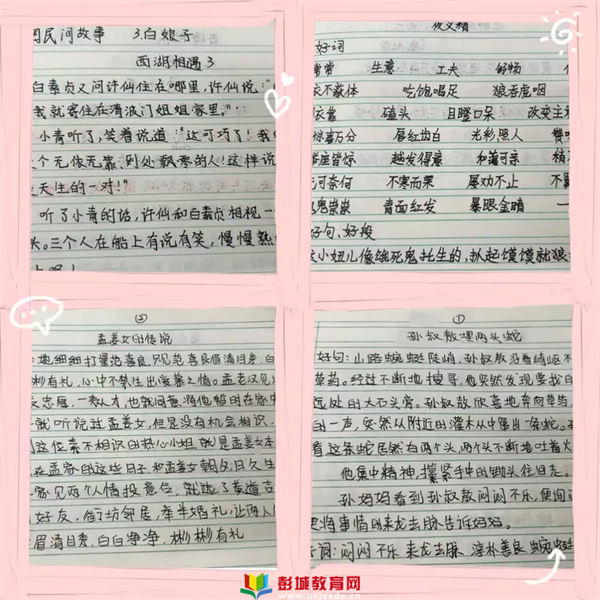 国民间故事 3.白娘子
西湖相遇3
白素贞又问许仙住在哪里,许仙说:"
我就寄住在清波门姐姐家里。"
小青听了,笑着说道:"这可巧了!我
个无依无靠、到处飘零的人!这样说
天生的一对!"
听了小青的话,许仙和白素贞相视一
三个人在船上有说有笑,慢慢熟
好词
常常 生意 工夫 舒畅
衣不蔽体 吃饱喝足 狼吞虎咽
衣靠 磕头 目瞪口呆 改变主
惊喜万分 唇红齿白 光彩照人
座皆惊 越发得意 和蔼可亲
可奈何 不寒而栗 屡劝不止
鬼鬼祟祟 青面红发 暴眼金睛
好句、好段
小妞儿像饿死鬼托生的,扒起馍馍就狼
②
孟姜女的传说
地细细打量范喜良,只见范喜良眉清目秀,白
彬有礼,心中不禁生出爱慕之情。孟老汉见
忠厚,一表人才,也就同意将他留在家
就听说过孟姜女,但是没有机会相识,
这位素不相识的热心小姐就是孟姜女本
在孟家的这些日子,和孟姜女朝夕日久生
家见两个人情投意合,就选了黄道吉
好友,街坊邻居,牵羊婚礼,让两人
眉清目秀,白白净净,彬彬有礼
①
孙叔敖埋两头蛇
好句:山路蜿蜒陡峭,孙叔敖沿着崎岖不
草药。经过不断地搜寻,他突然发现要找的
远处的大石头旁。孙叔敖欣喜地奔向草
的一声,突然从附近的灌木从中窜出一条蛇。
看这条蛇居然有两个头,两个头不断地吐着火
他集中精神,攥紧手中的锄头往旧走。
孙妈妈看到孙叔敖闷闷不乐,便询问
将事情的来龙去脉告诉妈妈。
词:闷闷不乐 来龙去脉 淳朴善良 蜿蜒
彭城教育网
www.pcjyedu.cn